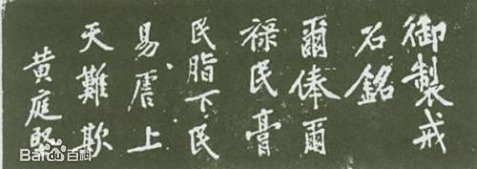 御製戒
石銘
爾俸爾
祿民膏
民脂下民
易虐上
天難欺
黃庭堅
Bai百科